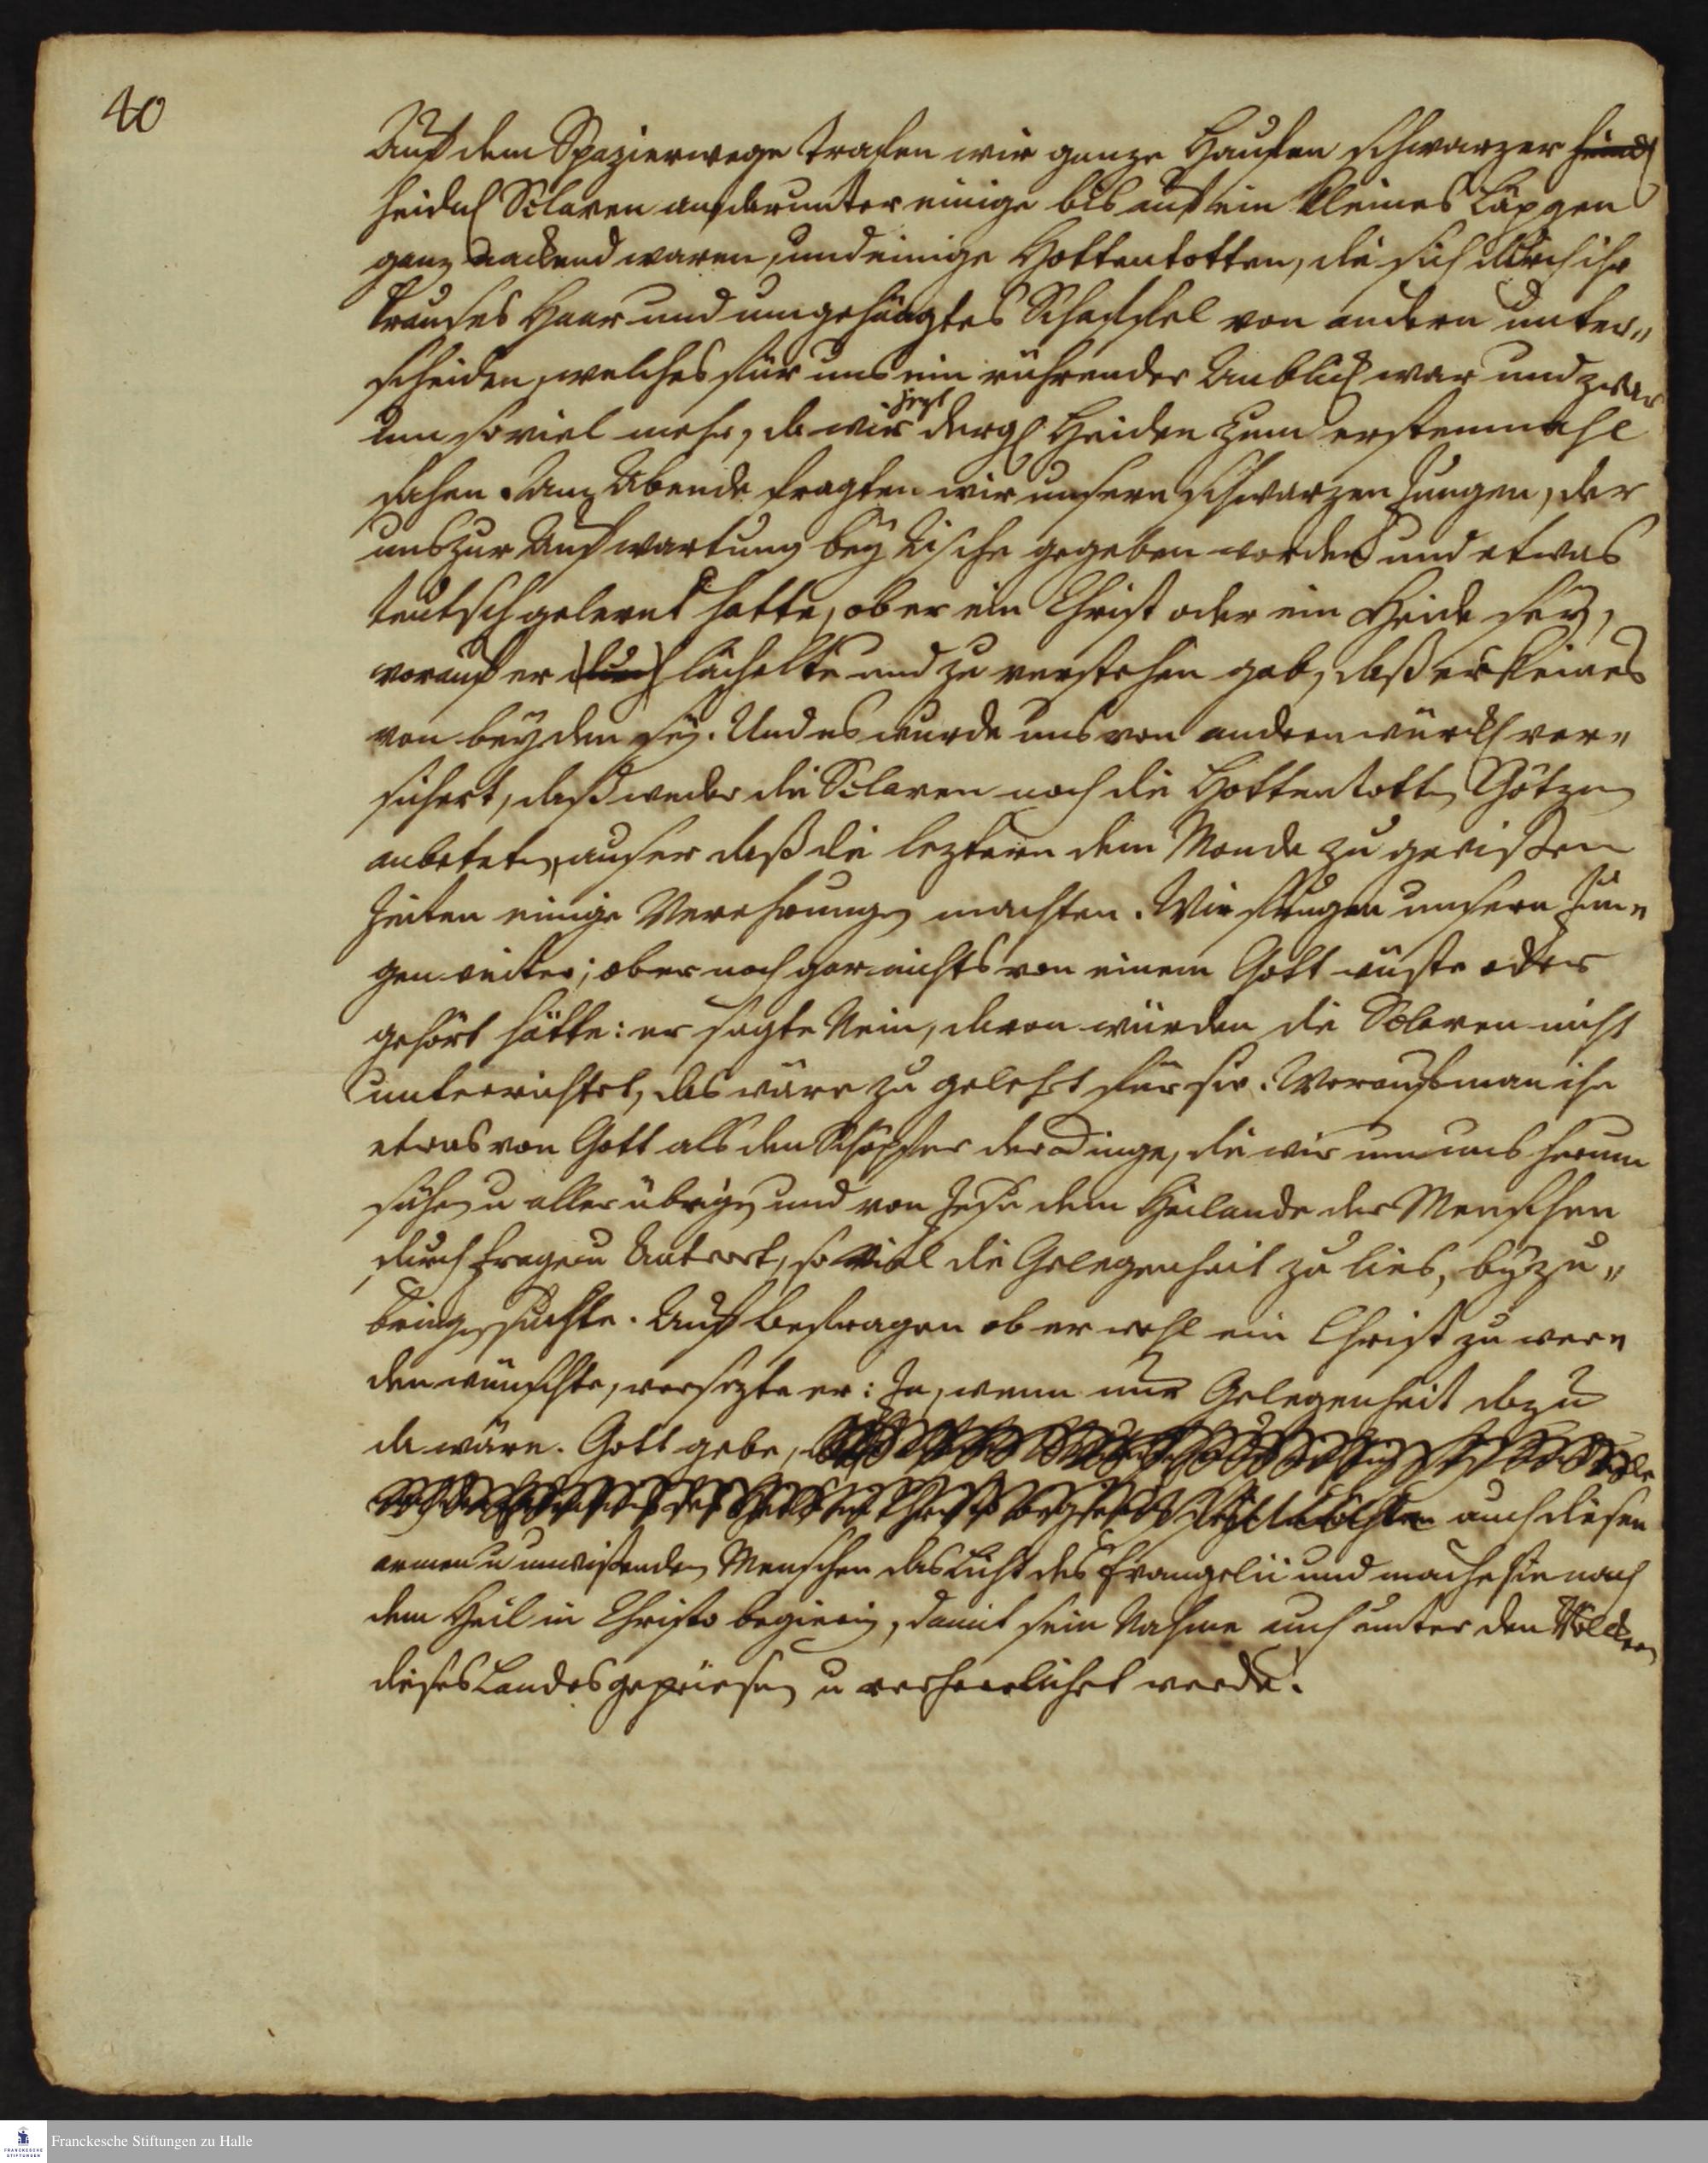 40
Auf dem Spazierwege trafen wir ganze Haufen schwarzer
heidn Sclaven an, darunter einige bis auf ein kleines Läpgen
ganz nackend waren, und einige Hottentotten, die sich durch ihr
krauses Haar und umgehängtes Schaffel von andern unter„
scheiden, welches für uns ein rührender Anblick war und zwar
jezt
um so viel mehr, da wir dergl Heiden zum erstenmahl
sahen. Am Abende fragten wir unsern schwarzen Jungen, der
uns zur Aufwartung bey Tische gegeben worden und etwas
teutsch gelernt hatte, ob er ein Christ oder ein Heide sey,
worauf er lächelte und zu verstehen gab, daß er keines
von beyden sey. Und es wurde uns von andern würckl ver„
sichert, daß weder die Sclaven noch die Hottentotten Götzen
anbeteten, auser daß die leztern dem Monde zu gewißen
Zeiten einige Verehrungen machten. Wir frugen unsern Jun„
gen weiter; ob er noch gar nichts von einem Gott wüste oder
gehört hätte: er sagte Nein, davon würden die Sclaven nicht
unterrichtet, das wäre zu gelehrt für sie. Worauf man ihm
etwas von Gott als den Schöpfer der Dinge, die wir um uns herum
sähen u alles übrigen und von Jesu dem Heilande der Menschen
durch Frage u Antwort, so viel die Gelegenheit zu lies, beyzu„
bringen suchte. Auf Befragen ob er wohl ein Christ zu wer„
den wünschte, versezte er: Ja, wenn nur Gelegenheit dazu
da wäre. Gott gebe,
auch diesen
armen u unwißenden Menschen das Licht des Evangelii und mache sie nach
dem Heil in Christo begierig, damit sein Nahme auch unter den Völckern
dieses Landes gepriesen u verherrlichet werde.
Franckesche Stiftungen zu Halle
FRANCKESCHE
STIFTUNGEN